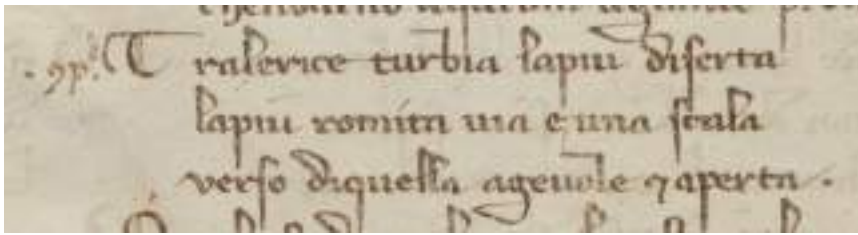 Tralerice turbia lapiu diserta
lapiu romita uia e una scala
verso diquella ageuole ⁊ aperta .